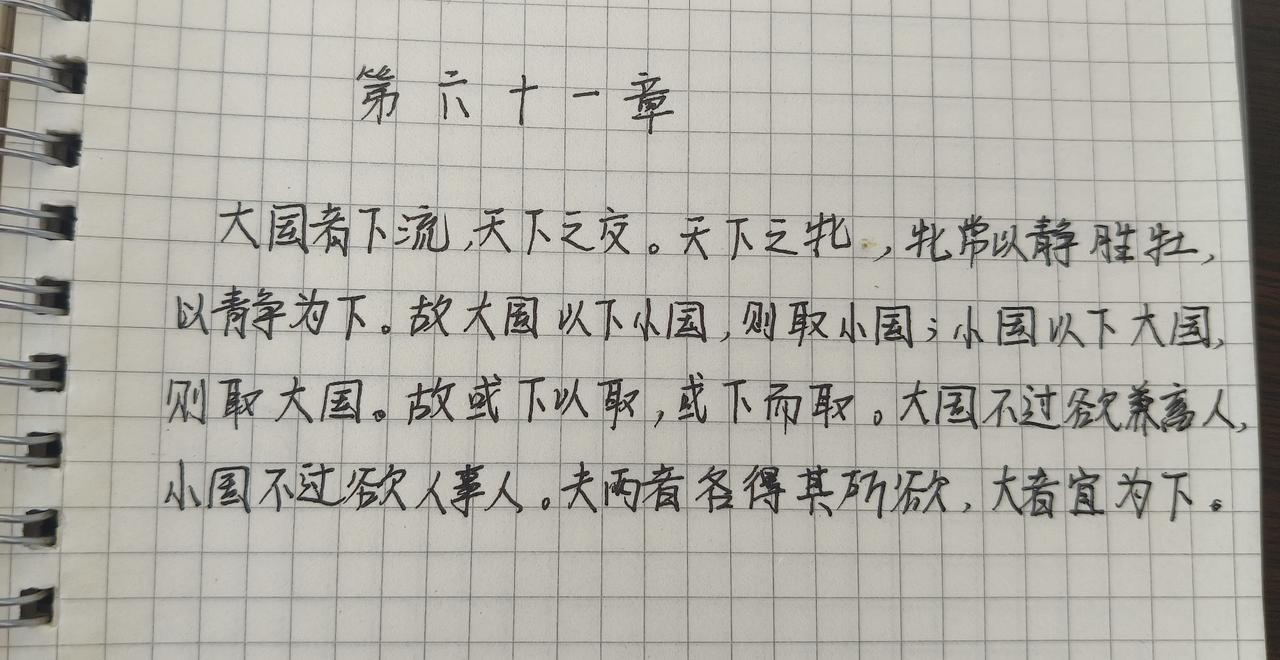 第六十一章
大国者下流,天下之交。天下之牝,牝常以静胜牡,
以静为下。故大国以下小国,则取小国;小国以下大国,
则取大国。故或下以取,或下而取。大国不过欲兼畜人,
小国不过欲人事人。夫两者各得其所欲,大者宜为下。